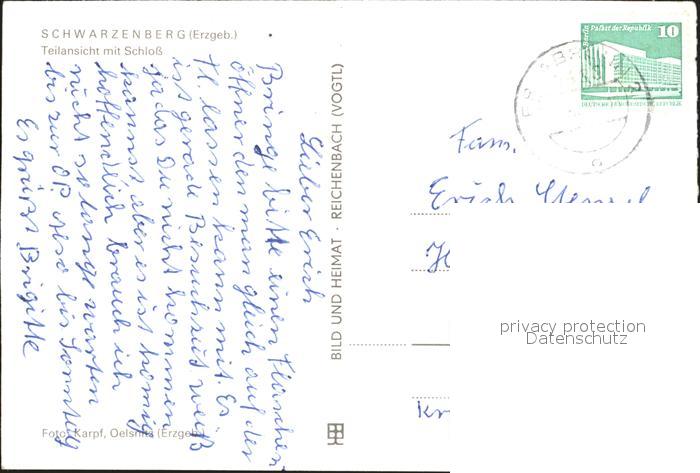 SCHWARZENBERG (Erzgeb.)
Teilansicht mit Schloß
Lieber Erich
Bringe bitte einen Flaschen
öffner den man gleich auf der
Fl. lassen kann mit. Es
ist gerade Besuchszeit weiß
ja das Du nicht kommen
kannst aber es ist komig
hoffendlich brauch ich
nicht so lange warten
bis zur OP. Also bis Sonntag
Es grüßt Brigitte
Foto: Karpf, Oelsnitz (Erzgeb.)
BILD UND HEIMAT · REICHENBACH (VOGTL)
Berlin Palast der Republik
10
DEUTSCHE DEMOKRATISCHE REPUBLIK
Fam.
Erich
privacy protection
Datenschutz